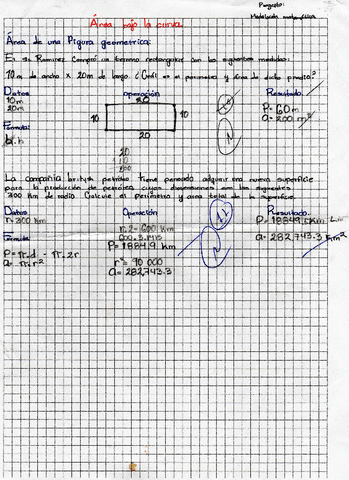 Proyecto:
Modelación matemática
Área bajo la curva
Área de una figura geometrica:
El sr. Ramirez Compró un terreno rectangular con las siguientes medidas:
10m de ancho x 20m de largo ¿Cuál es el perimetro y área de dicho predio?
Datos
10m
20m
Formula:
b.h
operación
20
10
10
20
20
x10
200
Resultado
P= 60m
a= 200 m²
La compañia british petróleo. Tiene pensado adquirir una nueva superficie
para la producción de petróleo, cuyas dimensiones son las siguientes
300 Km de radio. Calcule el perimetro y area total de la superficie.
Datos
r=300 Km
Formula:
P= π.d - π.2r
a= π.r²
Operación
r.2= 600 Km
600 x 3.1415
P= 1884.9 km
r²= 90 000
a= 282,743.3
Resultado:
P= 1884.9 Km
a= 282,743.3 Km²